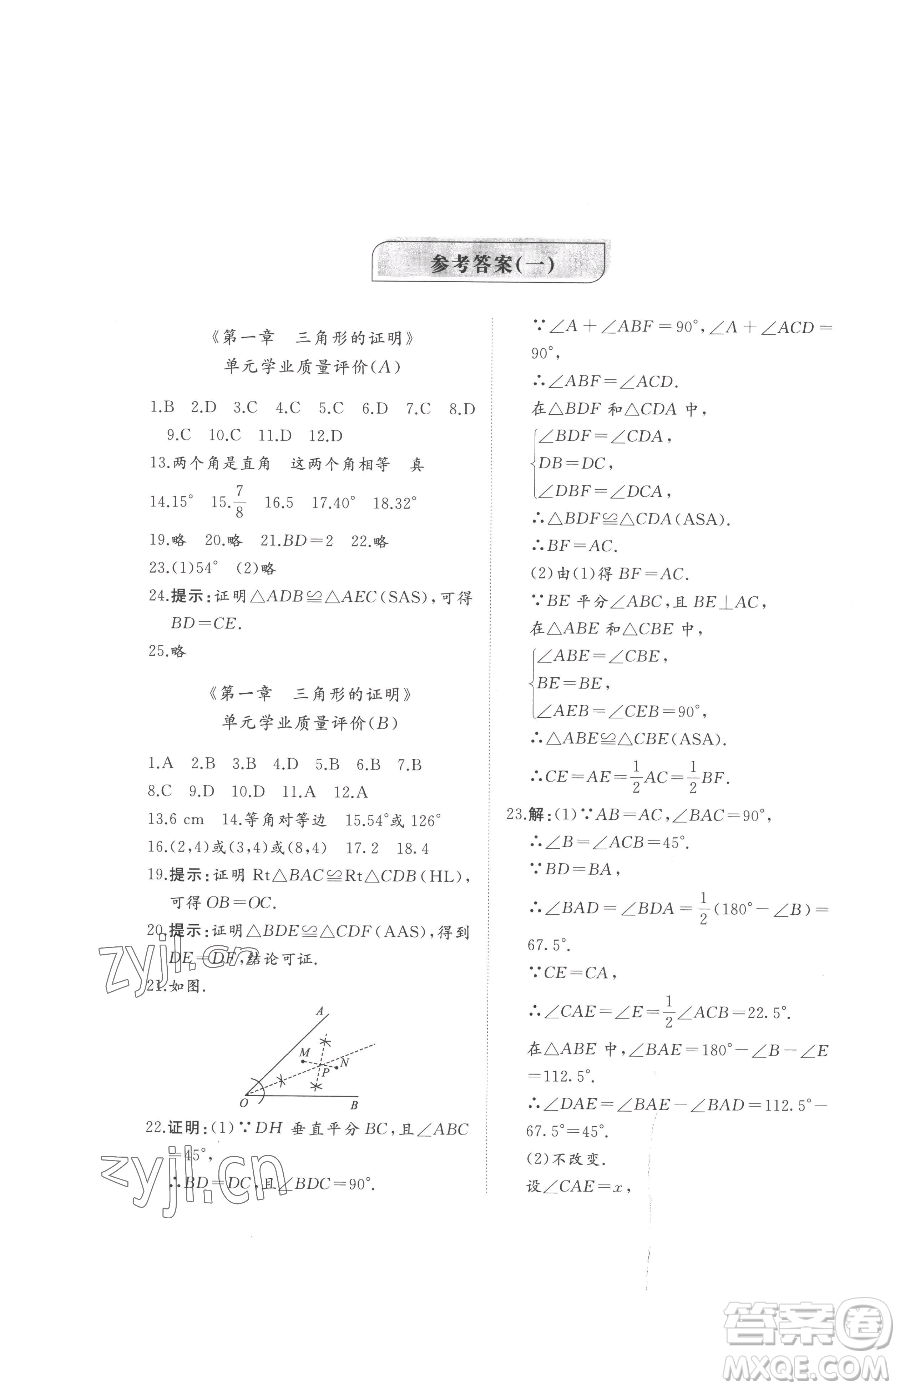 参考答案(一)
《第一章　三角形的证明》
单元学业质量评价(A)
1.B　2.D　3.C　4.C　5.C　6.D　7.C　8.D
9.C　10.C　11.D　12.D
13.两个角是直角　这两个角相等　真
14.15°　15.7/8　16.5　17.40°　18.32°
19.略　20.略　21.BD=2　22.略
23.(1)54°　(2)略
24.提示:证明△ADB≌△AEC(SAS),可得
BD=CE.
25.略
《第一章　三角形的证明》
单元学业质量评价(B)
1.A　2.B　3.B　4.B　5.B　6.B　7.B
8.C　9.D　10.B　11.A　12.A
13.6 cm　14.等角对等边　15.54°或 126°
16.(2,4)或(3,4)或(8,4)　17.2　18.4
19.提示:证明 Rt△BAC≌Rt△CDB(HL),
可得 OB=OC.
20.提示:证明△BDE≌△CDF(AAS),得到
DE=DF,结论可证.
21.如图.
A
M
N
P
O
B
22.证明:(1)∵DH 垂直平分 BC,且∠ABC
=45°,
∴BD=DC,且∠BDC=90°.
∵∠A+∠ABF=90°,∠A+∠ACD=
90°,
∴∠ABF=∠ACD.
在△BDF 和△CDA 中,
∠BDF=∠CDA,
DB=DC,
∠DBF=∠DCA,
∴△BDF≌△CDA(ASA).
∴BF=AC.
(2)由(1)得 BF=AC.
∵BE 平分∠ABC,且 BE⊥AC,
在△ABE 和△CBE 中,
∠ABE=∠CBE,
BE=BE,
∠AEB=∠CEB=90°,
∴△ABE≌△CBE(ASA).
∴CE=AE=1/2AC=1/2BF.
23.解:(1)∵AB=AC,∠BAC=90°,
∴∠B=∠ACB=45°.
∵BD=BA,
∴∠BAD=∠BDA=1/2(180°-∠B)=
67.5°.
∵CE=CA,
∴∠CAE=∠E=1/2∠ACB=22.5°.
在△ABE 中,∠BAE=180°-∠B-∠E
=112.5°.
∴∠DAE=∠BAE-∠BAD=112.5°-
67.5°=45°.
(2)不改变.
设∠CAE=x,
zyjl.cn
zyjl.cn
答案圈
MXQE.COM